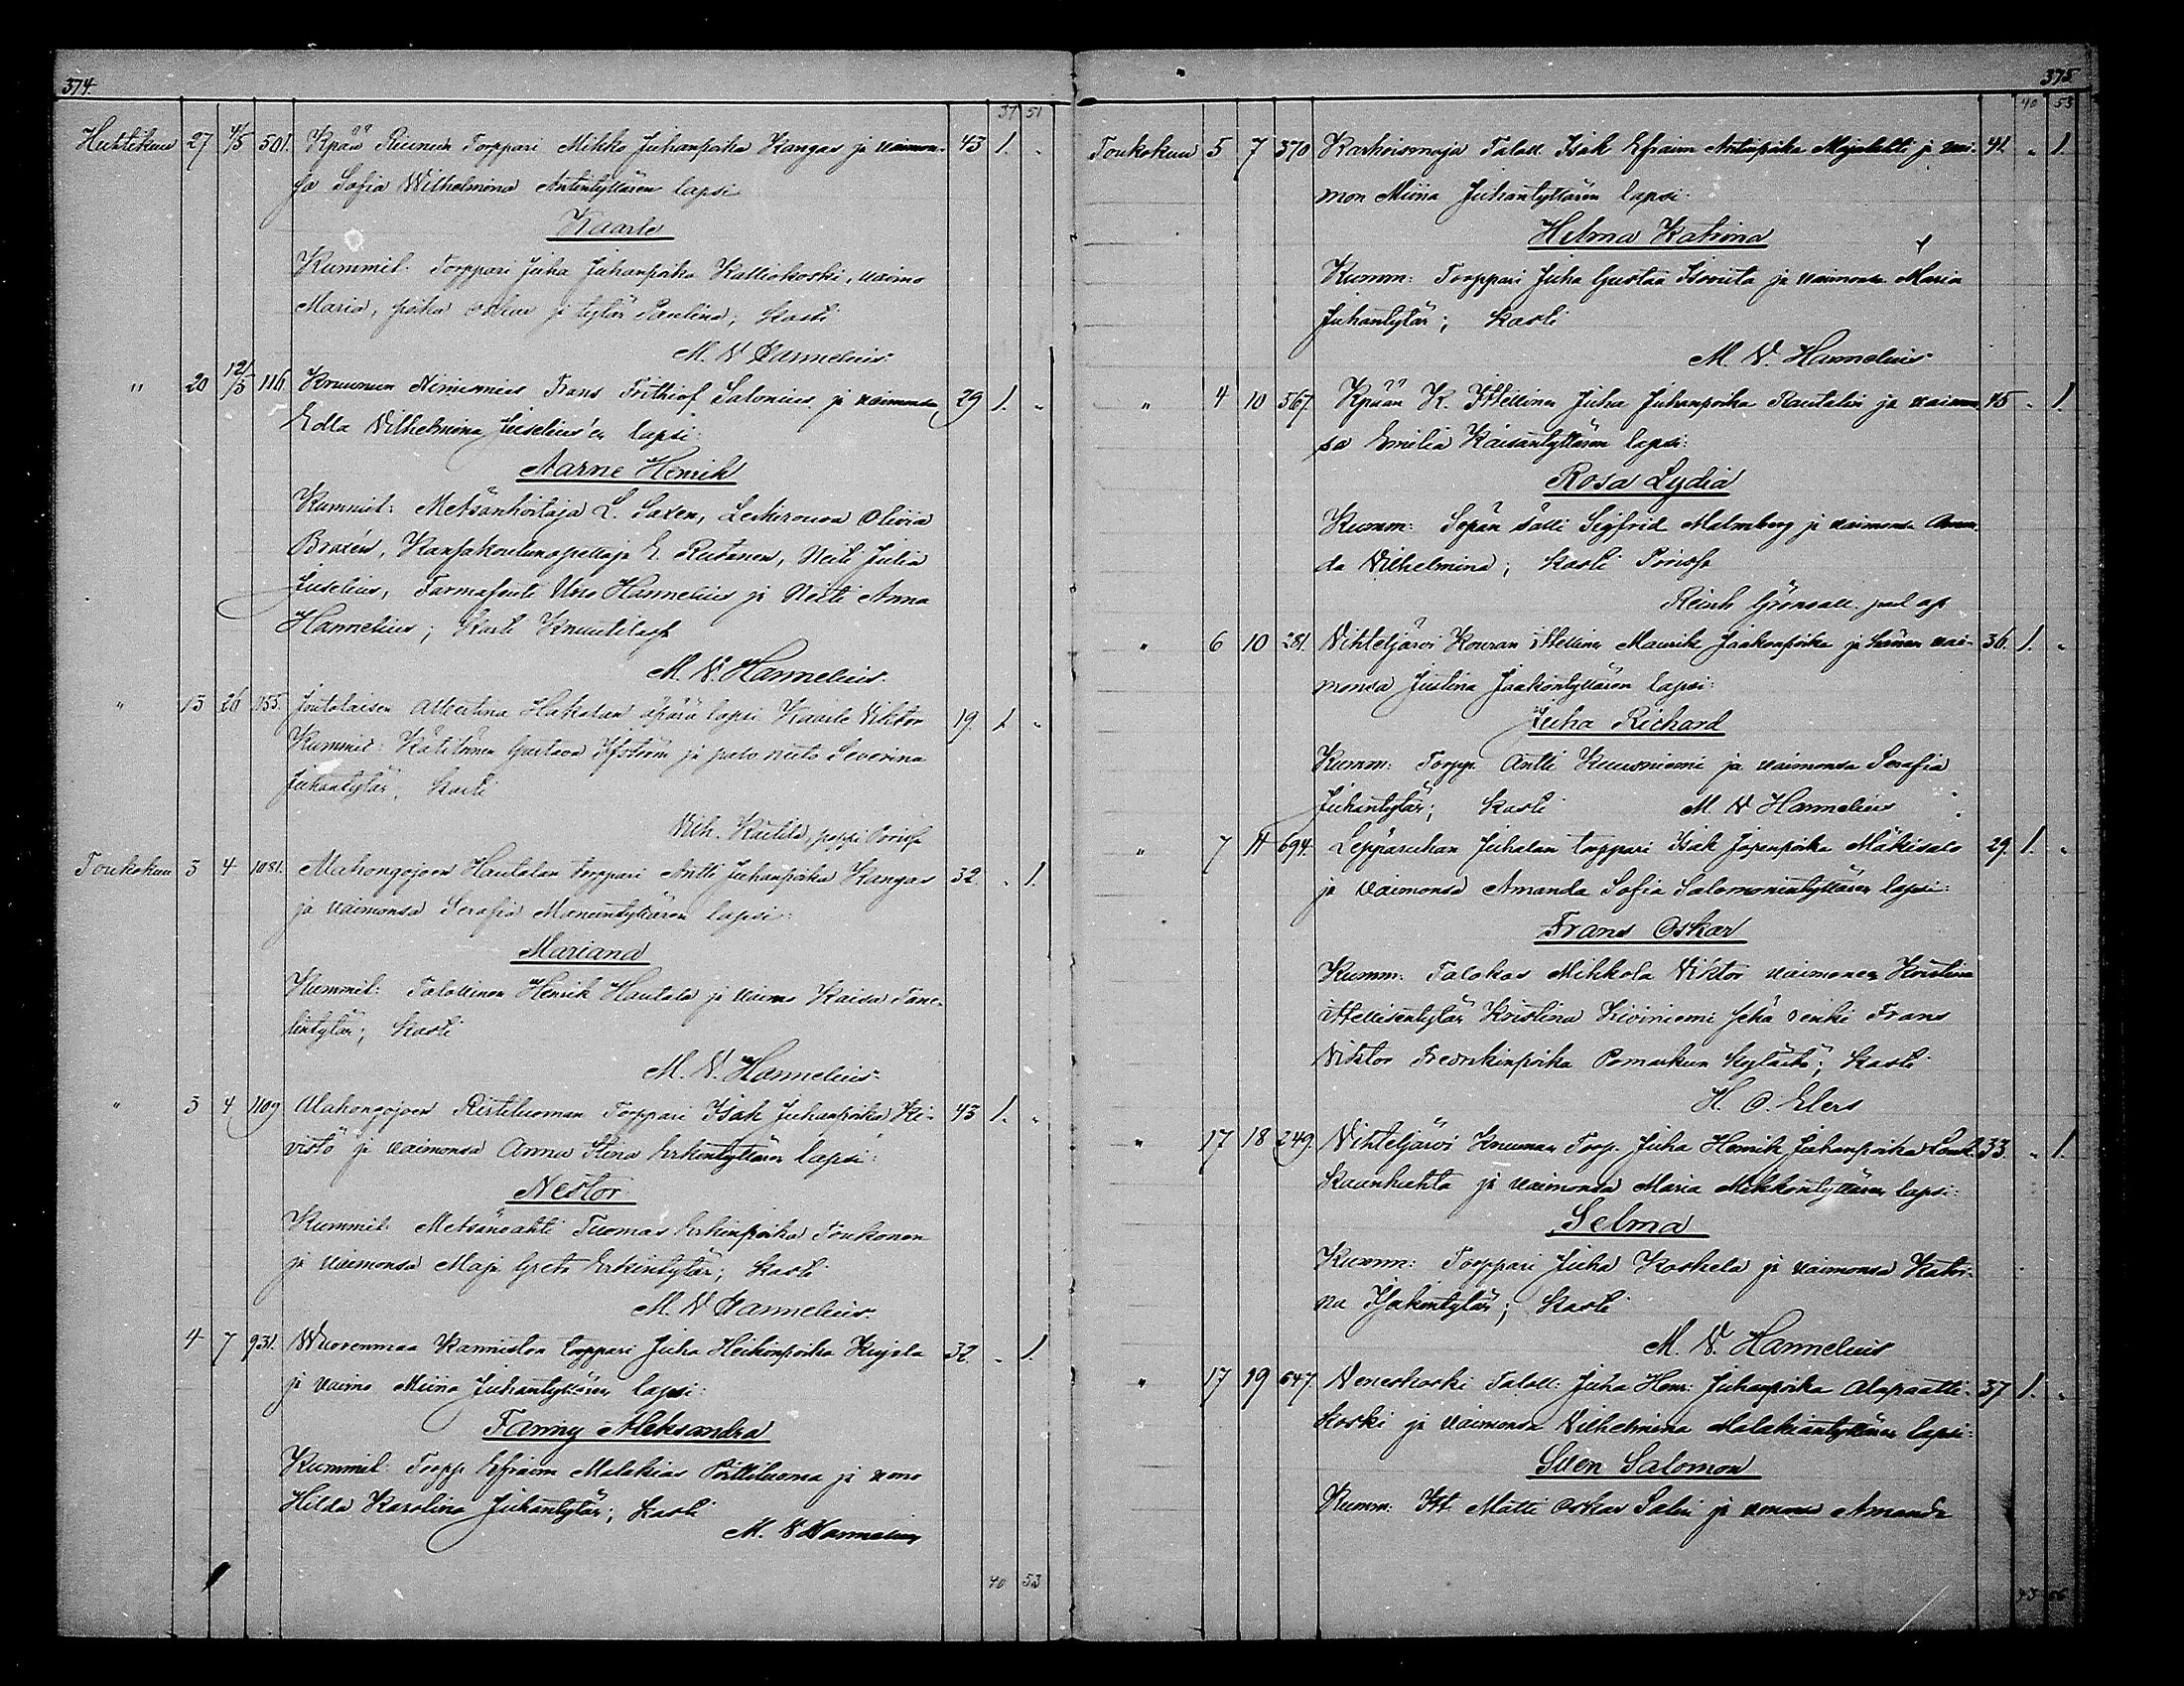 374.
31 51
Huhtikuu 27 4/5 501. Kpää Riunun Torppari Mikko Juhanpoika Kangas ja vaimon- 43 1. "
sa Sofia Wilhelmina Antintyttären lapsi
Kaarlo
Kummit: Torppari Juha Juhanpoika Kalliokoski, vaimo
Maria, poika Oskar ja tytär Paulina; kasti
M. V. Hannelius
" 20 12/5 116. Kruunun Nimismies Frans Frithiof Salonius ja vaimonsa 29 1. "
Edla Vilhelmina Juselius'en lapsi:
Aarne Henrik
Kummit: Metsänhoitaja L. Saxen, Leskirouva Olivia
Braxén, Kansakoulunopettaja E. Reitanen, Neiti Julia
Juselius, Farmaseuti Uno Hannelius ja Neiti Anna
Hannelius; Kasti Knuutilassa
M. V. Hannelius.
" 13 26 1155. Joutolaisen Albertina Hakalan äpärä lapsi Kaarlo Viktor 19. 1 "
Kummit: Kätilönen Gustava Öfström ja palv. neito Severina
Juhantytär, kasti
Vilh. Kaitila, pappi Porissa
Toukokuu 3 4 1081. Alahongojoen Hautalan torppari Antti Juhanpoika Kangas 32. " 1.
ja vaimonsa Serafia Manuntyttären lapsi:
Mariana
Kummit: Talollinen Henrik Hautala ja vaimo Kaisa Tane-
lintytär; kasti
M. V. Hannelius
" 3 4 1109 Alahongojoen Ristiluoman Torppari Isak Juhanpoika Ki- 43 1. "
vistö ja vaimonsa Anna Stina Erkintyttären lapsi:
Nestor
Kummit: Metsänvahti Tuomas Erkinpoika Toukonen
ja vaimonsa Maja Greta Erkintytär; kasti
M. V. Hannelius.
4 7 931. Wuorenmaa Kanniston torppari Juha Heikinpoika Kujala 32. " 1.
ja vaimo Miina Juhantyttären lapsi:
Fanny Aleksandra
Kummit: Torpp. Efraim Malakias Porttiluoma ja vmo
Hilda Karolina Juhantytär; kasti
M. V. Hannelius
40 53
375.
40 53
Toukokuu 5 7 370 Karhoismaja Taloll. Isak Efraim Antinpoika Majalahti ja vai- 41. " 1.
mon Miina Juhantyttären lapsi:
Helma Katrina
Kumm: Torppari Juha Gustaa Isoviita ja vaimonsa Maria
Juhantytär; kasti
M. V. Hannelius
" 4 10 567. Kpään K. Itsellinen Juha Juhanpoika Rautalin ja vaimon 45 " 1.
sa Emilia Kaisantyttären lapsi:
Rosa Lydia
Kumm: Sepän sälli Sigfrid Malmberg ja vaimonsa Aman-
da Vilhelmina; kasti Porissa
Reinh. Grönvall. past. apl
" 6 10 281. Vihteljärvi Kouran itsellinen Maurits Jaakonpoika ja hänen vai- 36. 1. "
monsa Justina Jaakontyttären lapsi:
Juha Richard
Kumm: Torpp. Antti Kuusniemi ja vaimonsa Serafia
Juhantytär; kasti M. V. Hannelius
" 7 11 694. Leppäruhan Juhalan torppari Isak Josenpoika Mäkisalo 29. 1. "
ja vaimonsa Amanda Sofia Salomonintyttären lapsi:
Frans Oskar
Kumm: Talokas Mikkola Viktor vaimonen Kristina
itsellisentytär Kristina Kiviniemi sekä renki Frans
Viktor Fredrikinpoika Pomarkun kylästä; kasti
H. O. Elers
" 17 18 249. Vihteljärvi Knuuan Torp. Juha Henrik Juhanpoika 33. " 1.
Kaunhuhta ja vaimonsa Maria Mikkontyttären lapsi:
Selma
Kumm: Torppari Juha Koskela ja vaimonsa Katri-
na Isakintytär; kasti
M. V. Hannelius
" 17 19 647. Veneskoski Taloll: Juha Henr: Juhanpoika Alapaatti- 37 1. "
koski ja vaimonsa Vilhelmina Malakiantyttären lapsi:
Sven Salomon
Kumm: Itl. Matti Oskar Salin ja vmonsa Amanda
43 56